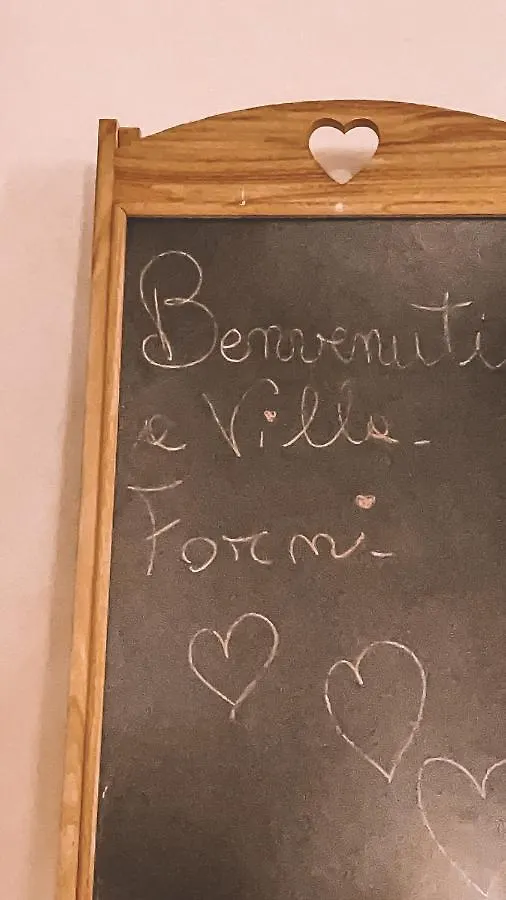 Benvenuti
a Villa
Formi